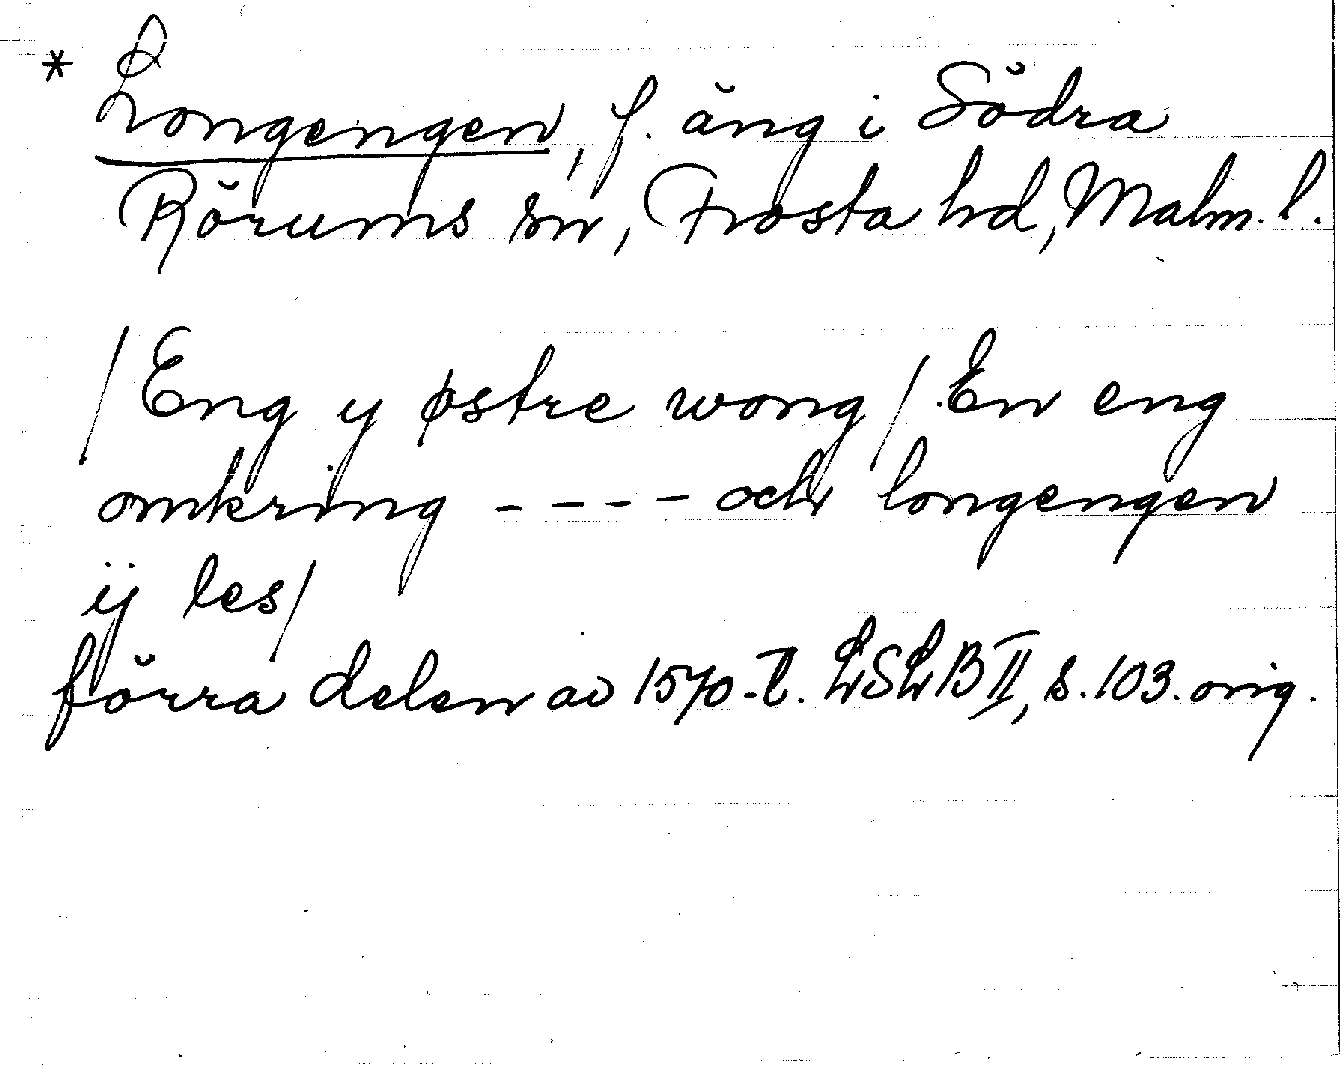 * Longengen, f. äng i Södra
Rörums sn, Frosta hd, Malm. l.
/ Eng y østre wong / En eng
omkring - - - - och longengen
ij les /
förra delen av 1570-t. LSLB II, s. 103. orig.